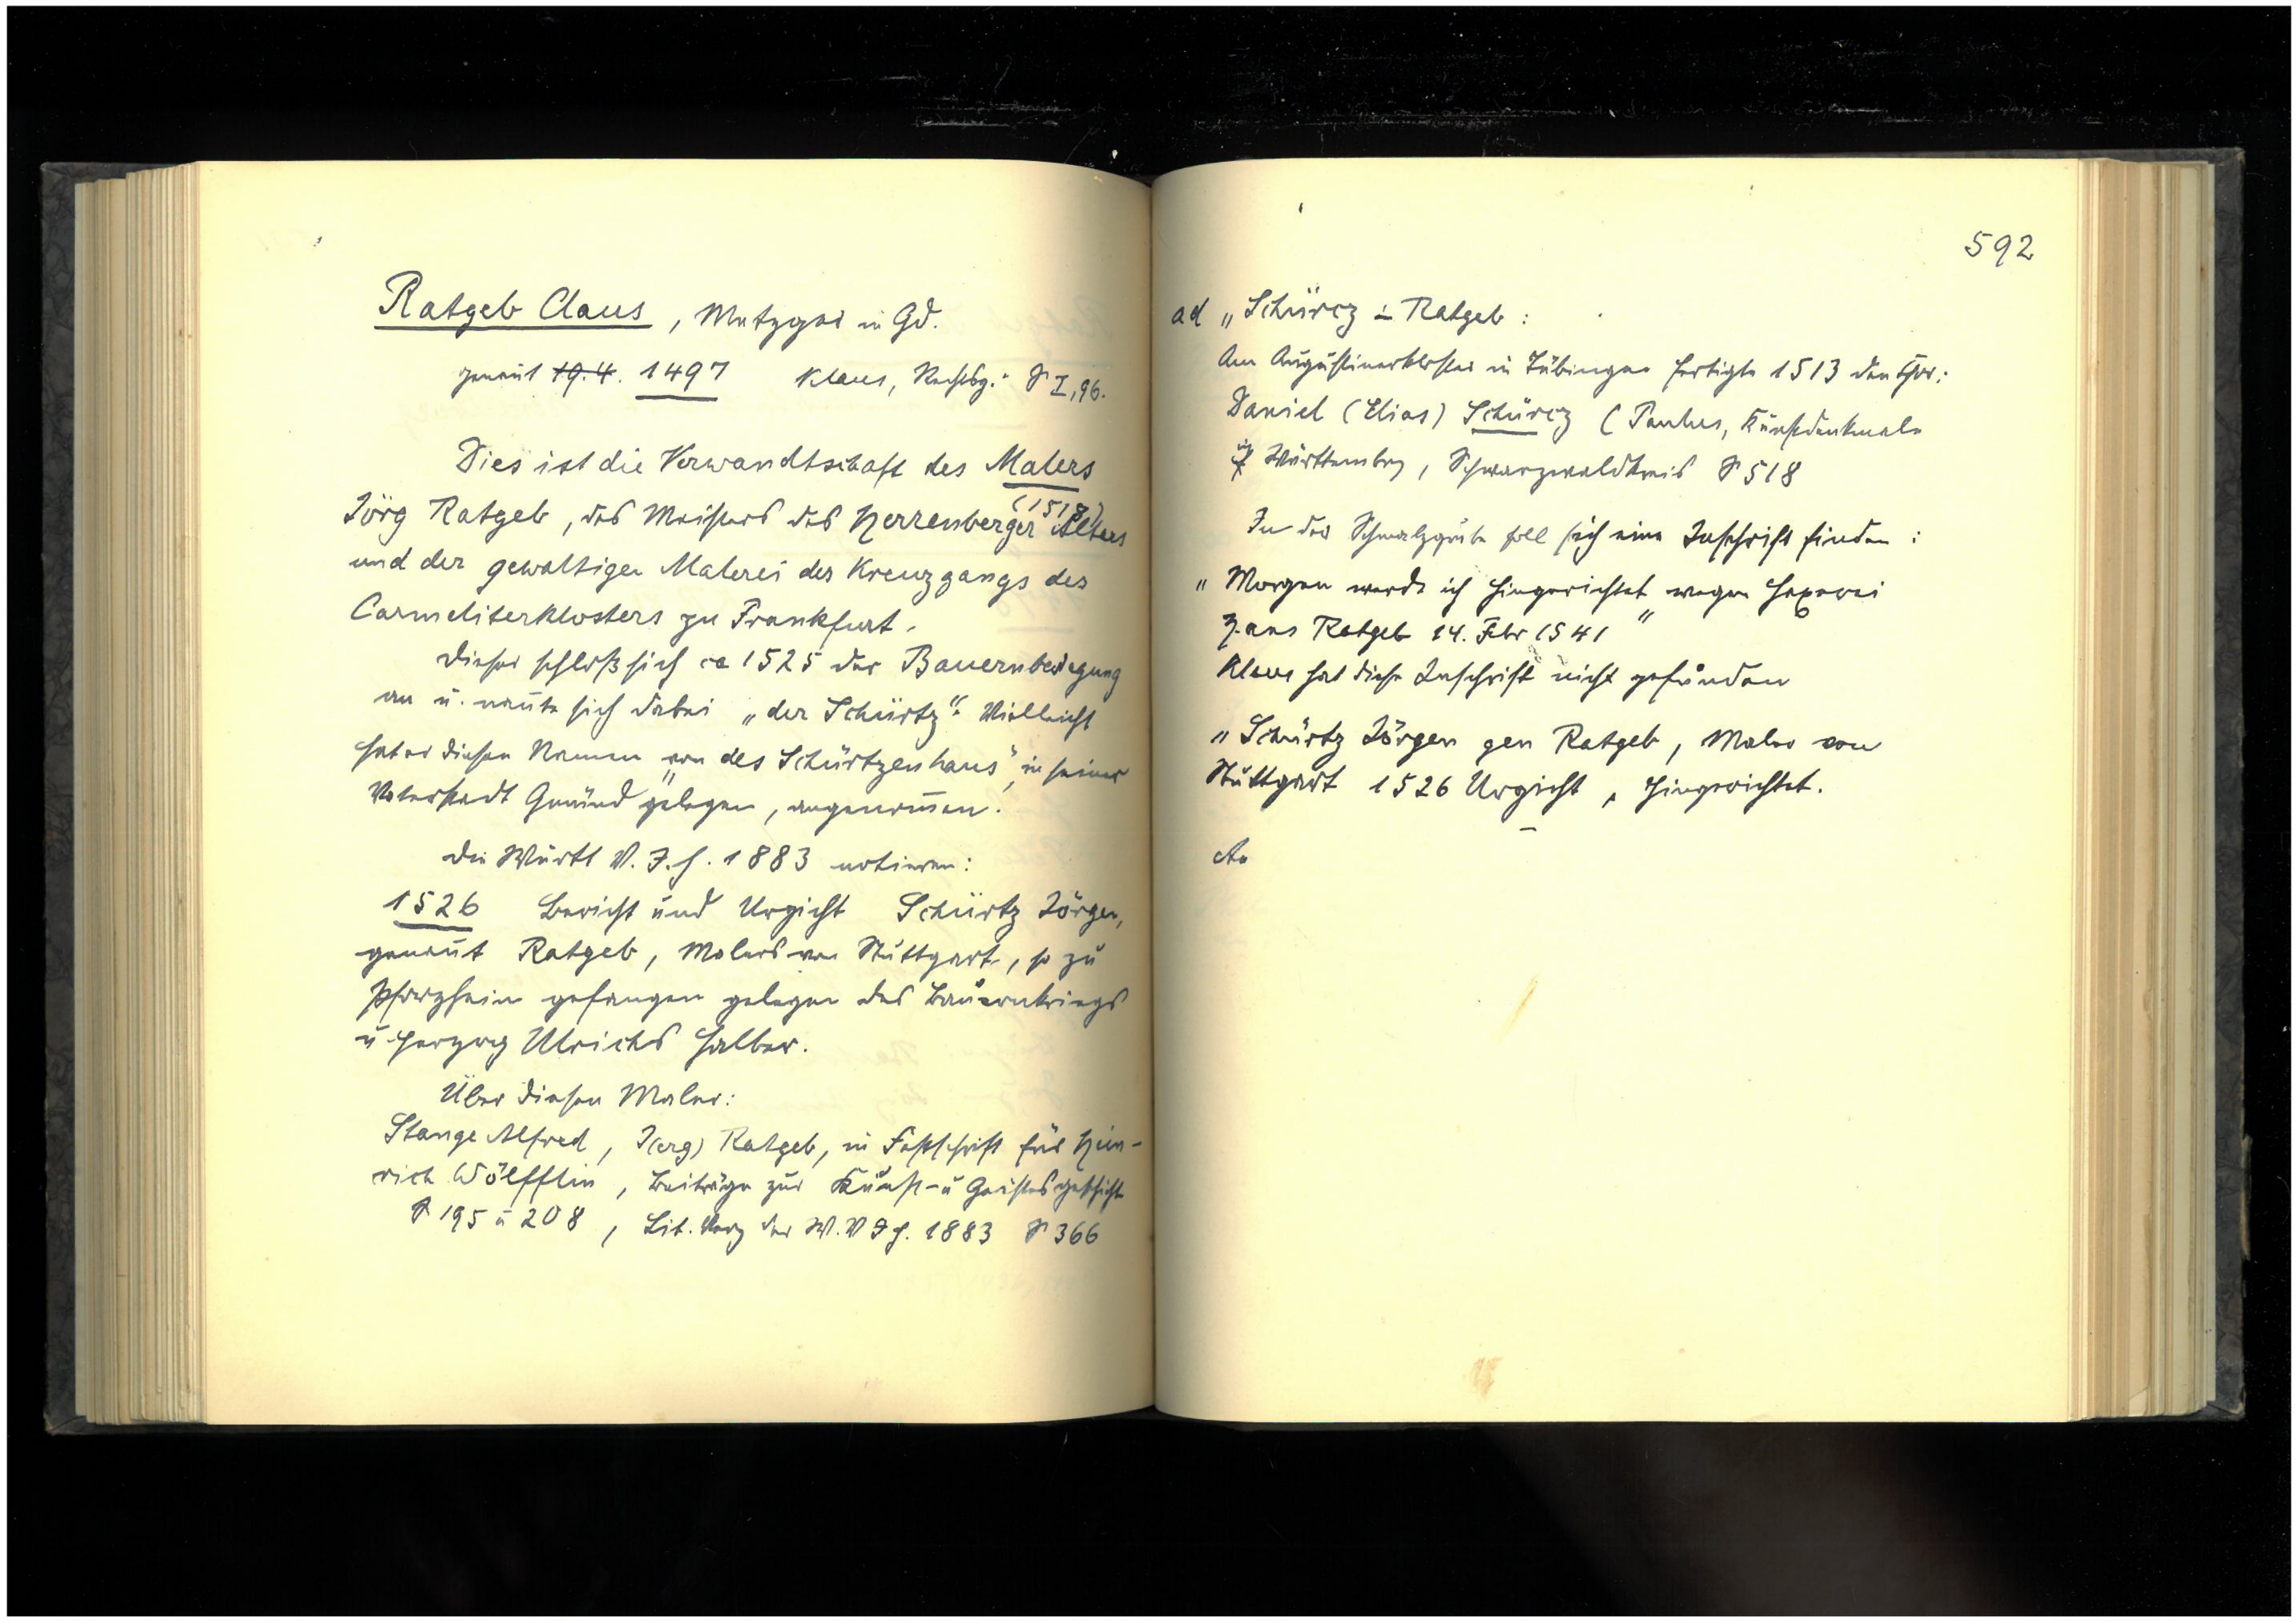 Ratgeb Claus, Metzger in Gd.
genañt 19.4. 1497 Klaus, Rechtsg. S I,96.
Dies ist die Verwandtschaft des Malers
Jörg Ratgeb, des Meisters des Herrenberger Alters (1518)
und der gewaltigen Malerei des Kreuzgangs des
Carmeliterklosters zu Frankfurt.
Dieser schloß sich ca 1525 der Bauernbewegung
an u. nañte sich dabei „der Schürtz“. Vielleicht
hat er diesen Namen von des „Schürtzenhaus“, in seiner
Vaterstadt Gmünd gelegen, angenom̄en.
Die Württ V.J.H. 1883 notieren:
1526 Bericht und Urgicht Schürtz Jörgen,
genañt Ratgeb, Malers von Stuttgart, so zu
Pforzheim gefangen gelegen des Bauernkriegs
u Herzog Ulrichs halber.
Über diesen Maler:
Stange Alfred, J(erg) Ratgeb, in Festschrift für Hein-
rich Wölfflin, Beiträge zur Kunst- u Geistesgeschichte
S 195 u 208, Lit. Verz der W.V.J.H. 1883 S 366
592
ad „Schürcz - Ratgeb:
Am Augustinerkloster in Tübingen fertigte 1513 den Chor:
Daniel (Elias) Schürcz (Paulus, Kunstdenkmale
in Württemberg, Schwarzwaldkreis S 518
In der Schmalzgrube soll sich eine Inschrift finden:
„Morgen werde ich hingerichtet wegen Hexerei“
Hans Ratgeb 14. Febr 1541
Klaus hat diese Inschrift nicht gefunden
„Schürtz Jörgen gen Ratgeb, Maler von
Stuttgart 1526 Urgicht, hingerichtet.